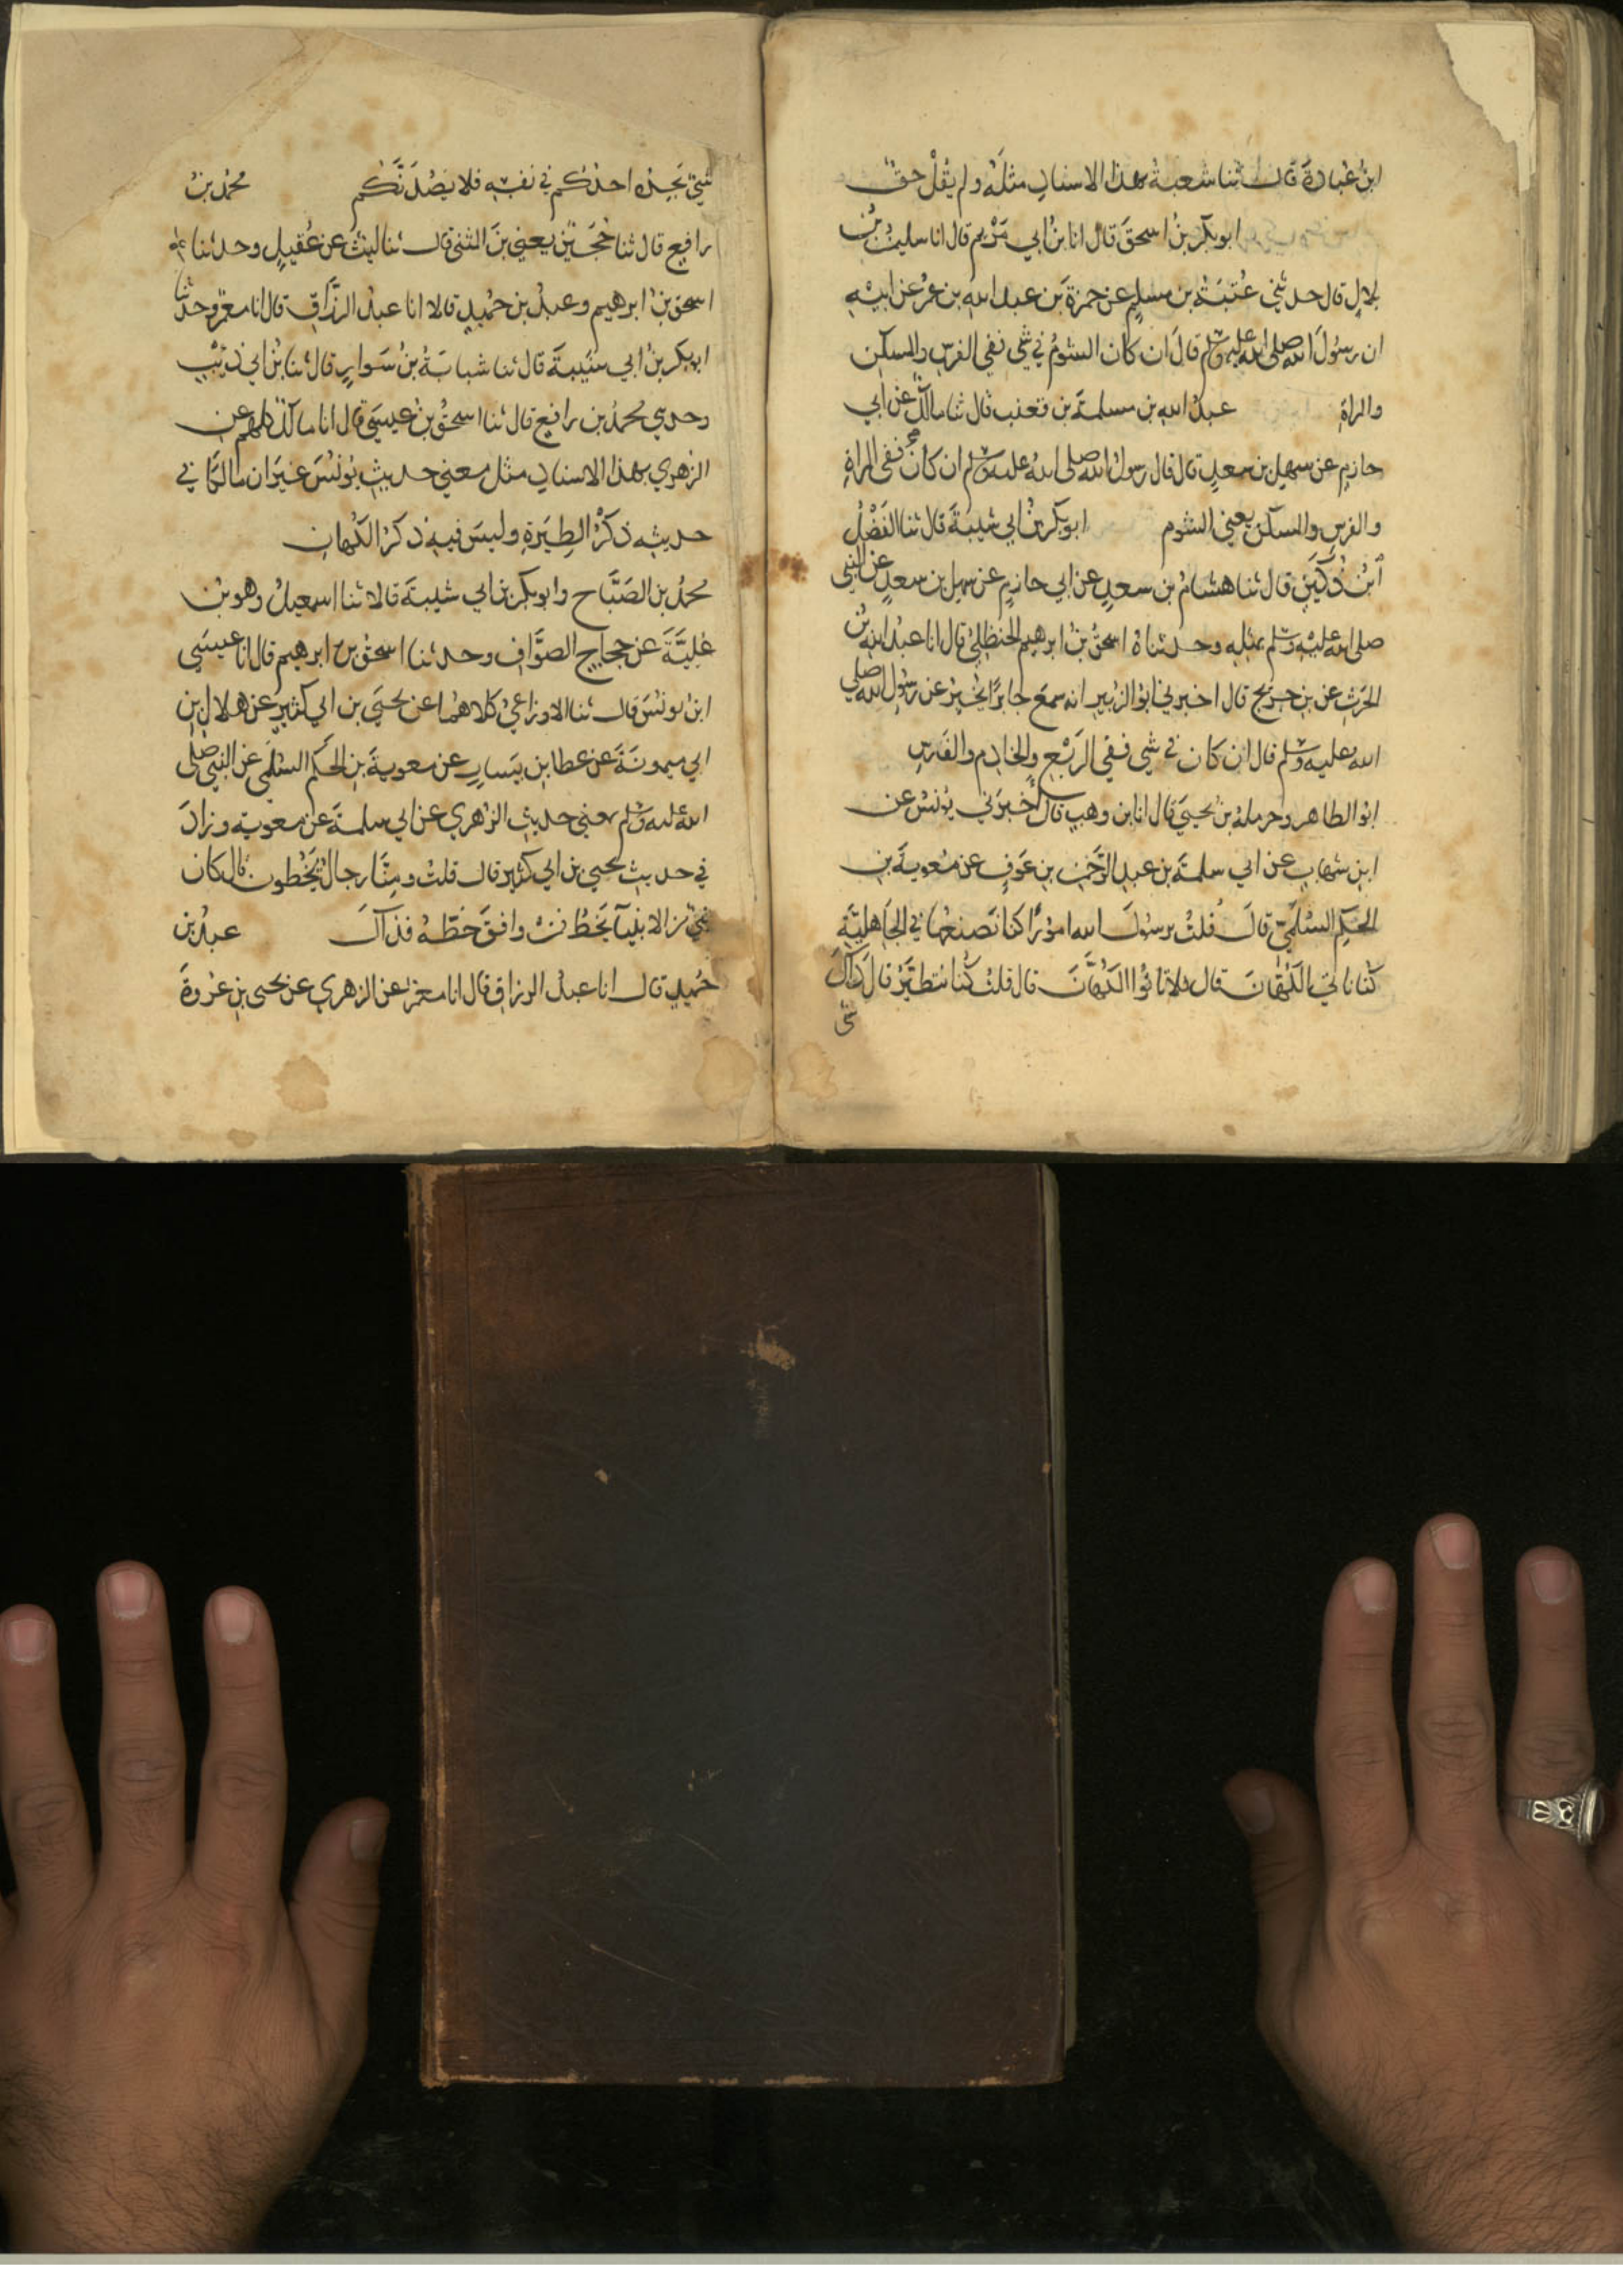 ابنُ عُبادَةَ قال ثنا شعبةُ بهذا الاسنادِ مثلَهُ ولم يقُلْ حقٌّ
ابو بكرِ بنُ اسحقَ قال انا بنُ ابي مَرْيم قال انا سليمنُ بنُ
بلالٍ قال حدثني عُتبَةُ بن مسلمٍ عن حمزةَ بن عبد الله بن عمرَ عن ابيه
ان رسُولَ الله صلى الله عليه وسلم قالَ ان كان الشومُ في شي ففي الفرس والمسكن
والمراةِ عبدُ الله بن مسلمةَ بن قعنب قال ثنا مالكٌ عن ابي
حازمٍ عن سهل بن سعدٍ قال قال رسولُ الله صلى اللهُ عليه وسلم ان كانَ ففي المراةِ
والفرسِ والمسكن يعني الشوم ابو بكر بنُ ابي شيبَةَ قال ثنا الفَضْلُ
ابنُ دُكَينٍ قال ثنا هشامُ بن سعدٍ عن ابي حازمٍ عن سهل بن سعدٍ عن النبي
صلى الله عليْه وسلم بمثلهِ وحدثناهُ اسحقُ بنُ ابرهيم الحنظليُّ قال انا عبدُ الله بنُ
الحرثِ عن بن جريجٍ قال اخبرني ابوُ الزبيرِ انه سمعَ جابرًا يخبرُ عن رسُولِ الله صلى
الله عليه وسلم قال ان كان في شي ففي الرَبْعِ والخادِم والفَرَسِ
ابوُ الطاهر وحرملةُ بن يحيىَ قال انا بن وهبٍ قال اخبرَني يوُنسُ عن
ابنِ شهابٍ عن ابي سلمةَ بن عبدِ الرَّحمٰن بن عَوفٍ عن مُعويةَ بنِ
الحكمِ السُلَمِيِّ قالَ قُلتُ يرسُولَ الله امورًا كنا نَصنعُها في الجَاهليَّةِ
كُنا ناتي الكُهّانَ قال فلا تاتُوا الكُهّانَ قال قلتُ كُنا نتطيَّرُ قالَ ذاكَ
شي
شيٌ يَجِدُه احدُكم في نفسِهِ فلا يَصُدَّنَّكم محمدُ بنُ
رافعٍ قال ثنا حُجَينٌ يعني بنَ المثنى قال ثنا ليثٌ عن عُقيلٍ وحدثنا
اسحقُ بنُ ابرهيم وعبدُ بن حُميدٍ قالا انا عبدُ الرَّزّاقِ قال انا معمرٌ وحدثنا
ابو بكر بنُ ابي شيبةَ قال ثنا شبابَةُ بنُ سَوارٍ قال ثنا بنُ ابي ذئبٍ
وحدثني محمدُ بن رافعٍ قال ثنا اسحقُ بنُ عيسىَ قال انا مالكٌ كلهم عن
الزُهري بهذا الاسنادِ مثل معني حديثِ يُونسَ غيرَ ان مالكًا في
حديثهِ ذكرُ الطِيَرةِ وليسَ فيهِ ذكرُ الكُهانِ
محمدُ بن الصَبَّاحِ وابو بكر بن ابي شيبةَ قالا ثنا اسمعيلُ وهو بنُ
عُليَّةَ عن حجاجٍ الصوَّافِ وحدثنا اسحقُ بن ابرهيم قال انا عيسىَ
ابن يونسَ قال ثنا الاوزاعيُ كلاهُما عن يحيىَ بن ابي كثيرٍ عن هلال بن
ابي ميمونةَ عن عطا بن يَسارٍ عن معويةَ بن الحكم السلَمي عن النبي صلى
الله عليه وسلم بمعني حديثِ الزهري عن ابي سلمةَ عن معويةَ وزادَ
في حديث يحيى بن ابي كثيرٍ قال قلتُ ومنَّا رجالٌ يَخُطون قال كان
نبيٌ من الانبيآ يَخُطُّ فمن وافقَ خَطَّهُ فذاك عبدُ بن
حُميدٍ قال انا عبدُ الرزاقِ قال انا معمرٌ عن الزهري عن يحيى بن عُروةَ